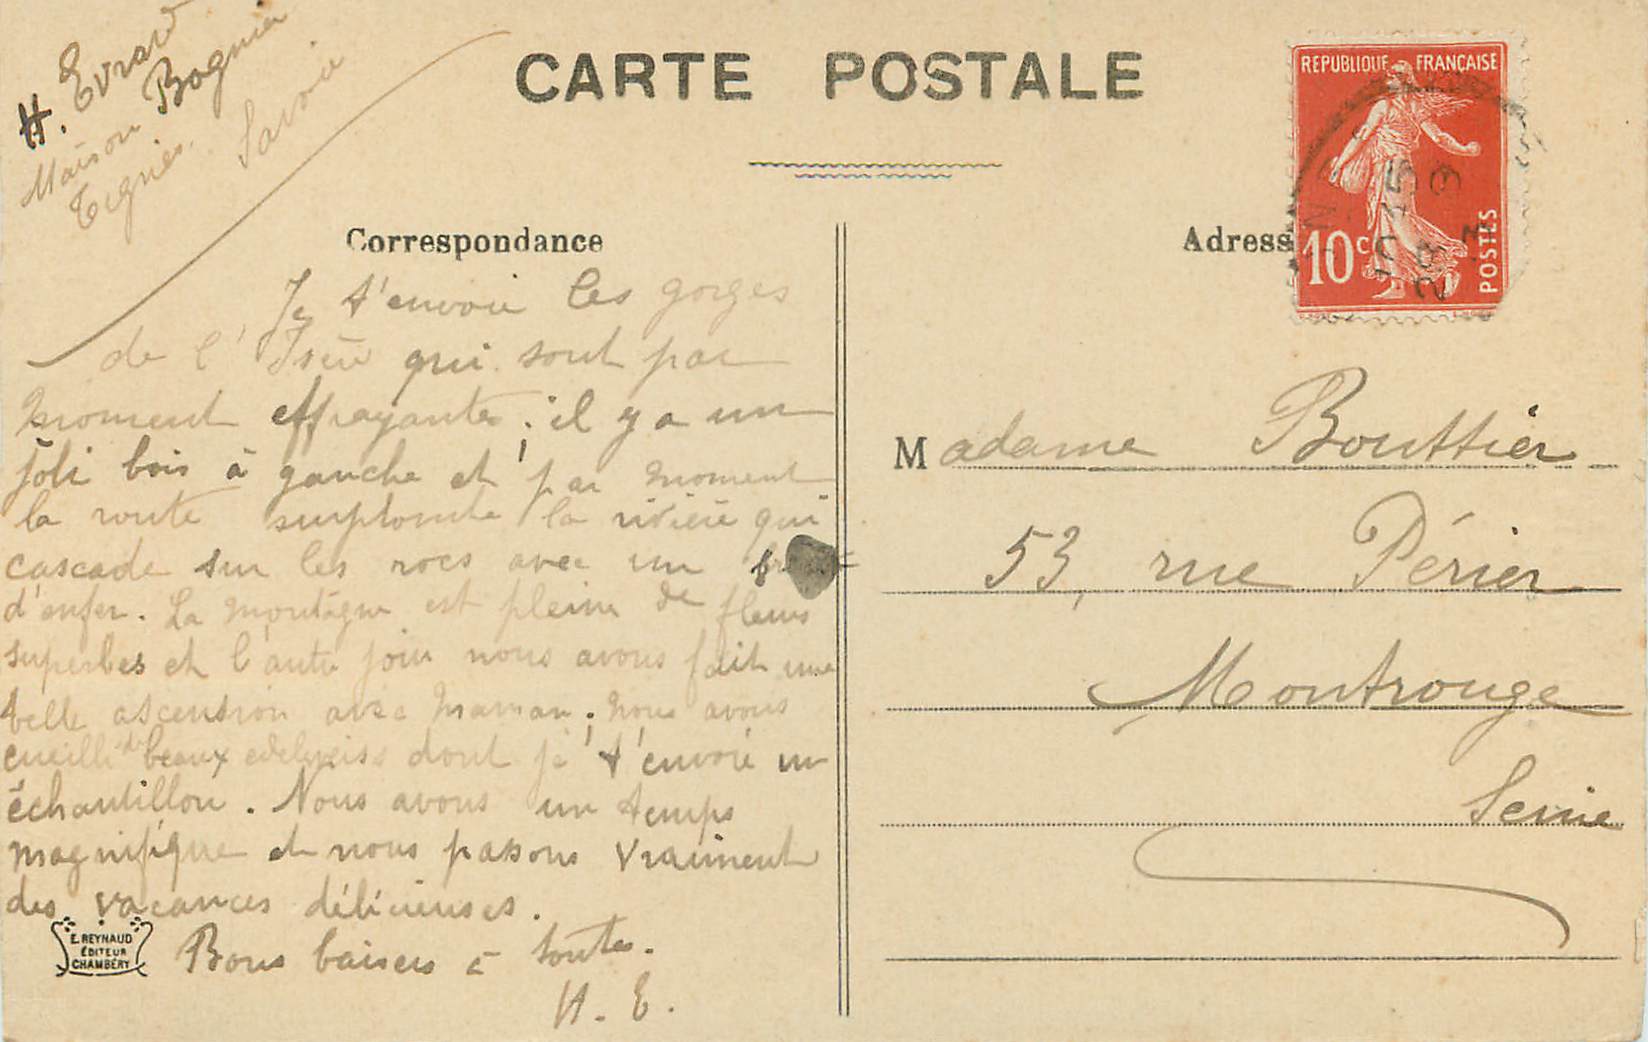 CARTE POSTALE
H. Evrard
Maison Bognier
Tignes. Savoie
Correspondance
Je t'envoie les gorges
de l'Isère qui sont par
moment effrayantes; il y a un
joli bois à gauche et par moment
la route surplombe la rivière qui
cascade sur les rocs avec un
d'enfer. La montagne est pleine de fleurs
superbes et l'autre jour nous avons fait une
belle ascension avec maman; nous avons
cueilli de beaux edelweiss dont je t'envoie un
échantillon. Nous avons un temps
magnifique et nous passons vraiment
des vacances délicieuses.
Bons baisers à toutes.
H. E.
E. REYNAUD
ÉDITEUR
CHAMBÉRY
REPUBLIQUE FRANÇAISE
10c
POSTES
Adress
Madame Bouttier
53, rue Périer
Montrouge
Seine